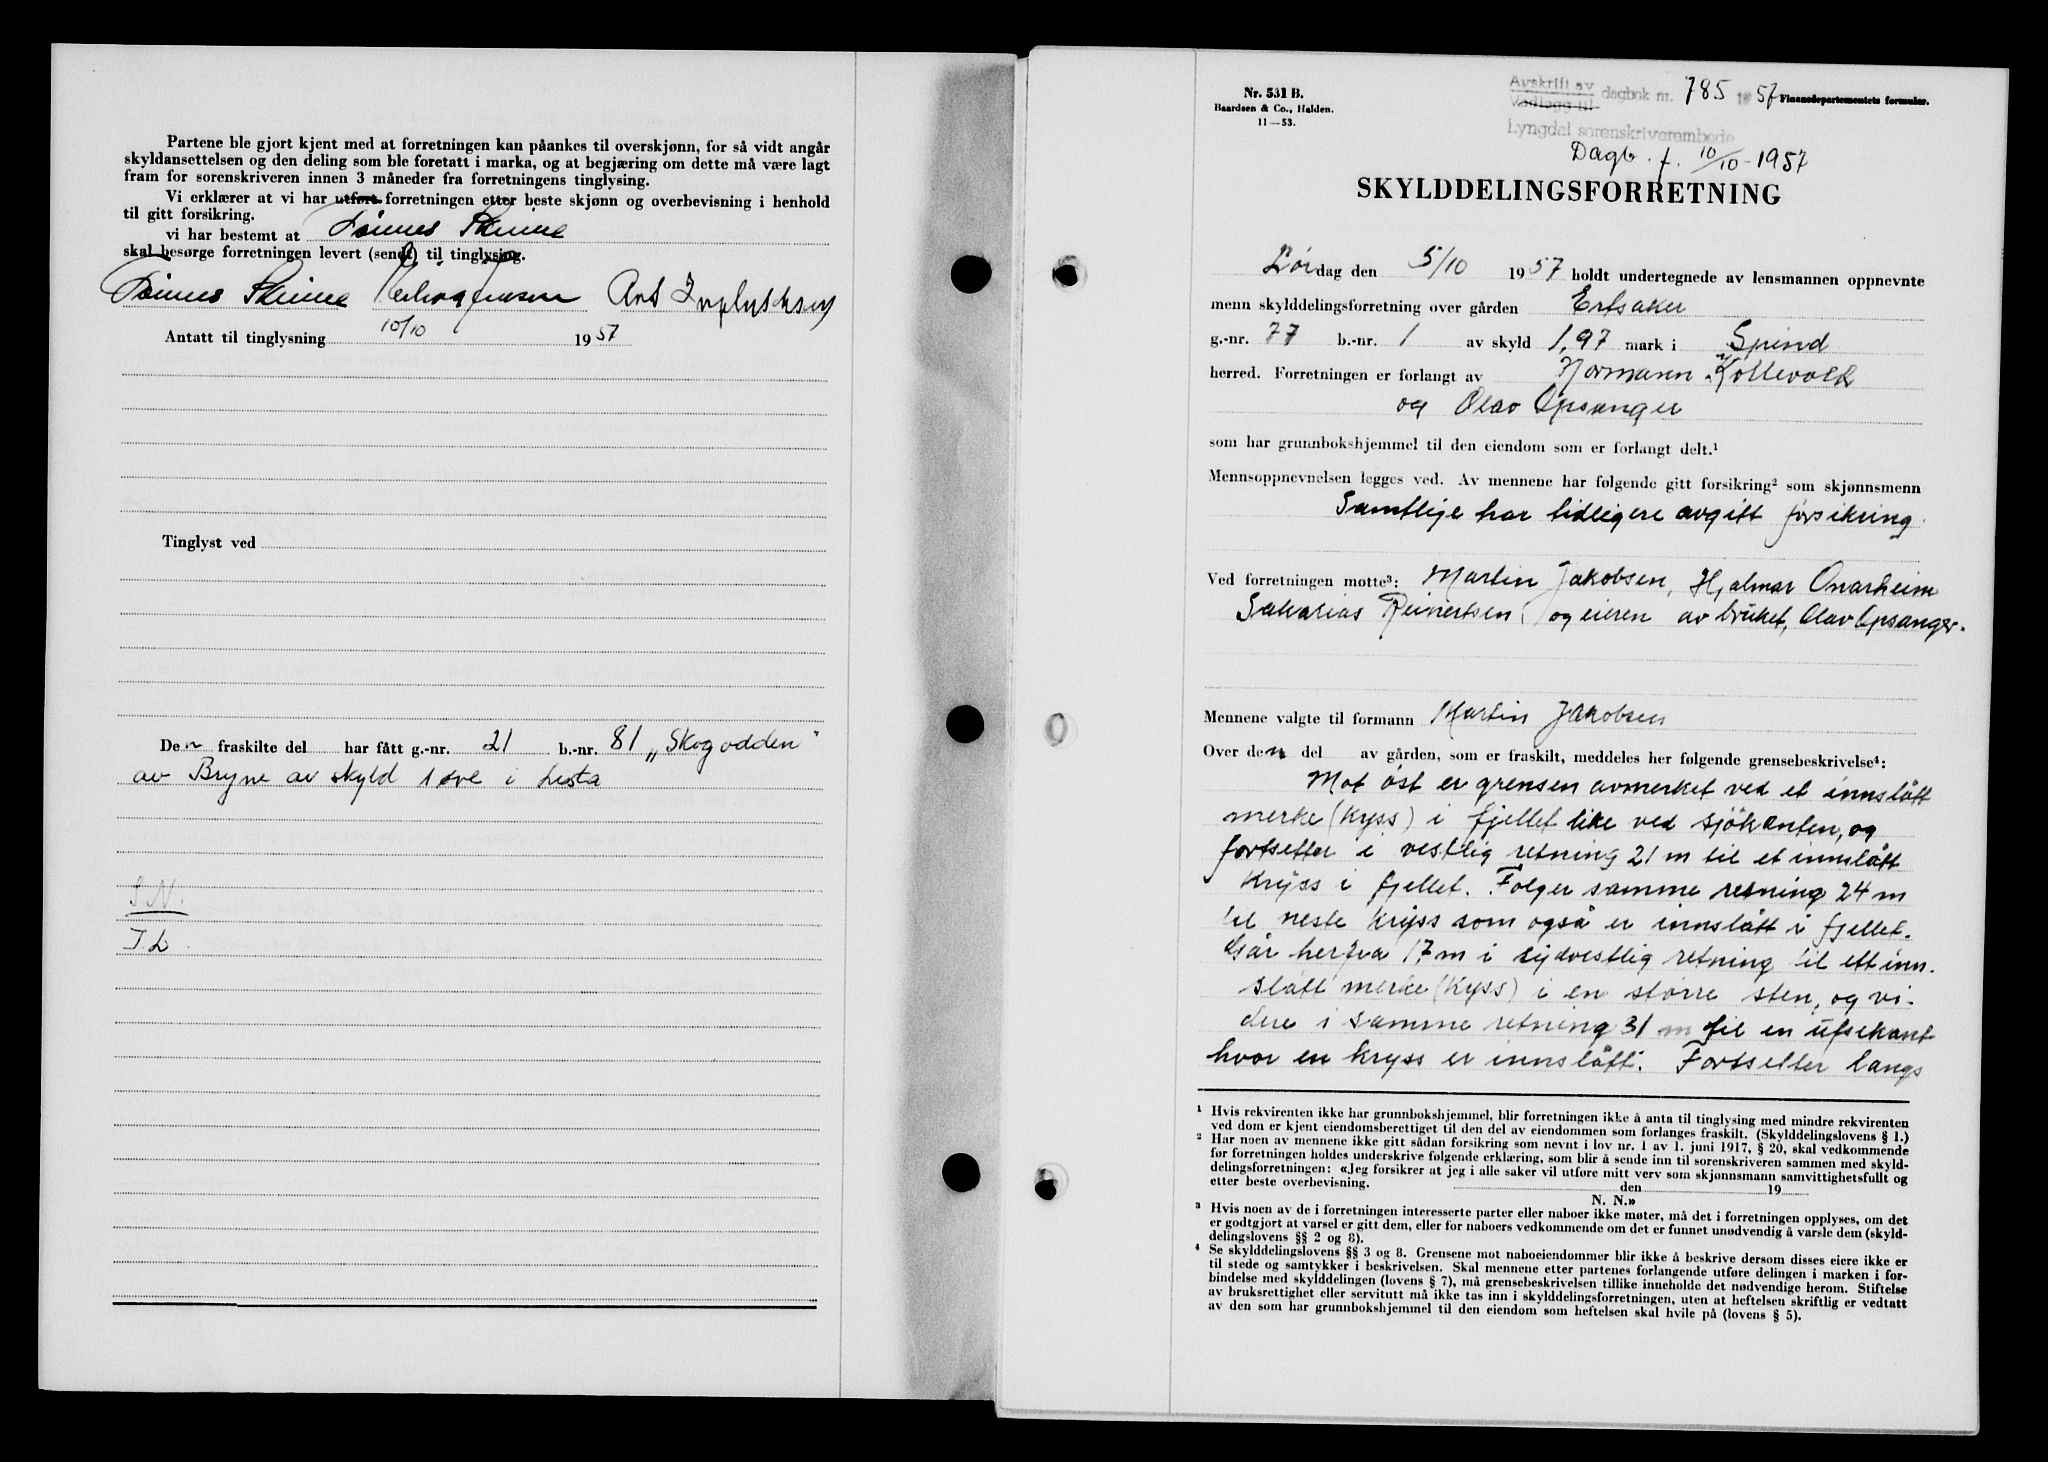 Partene ble gjort kjent med at forretningen kan påankes til overskjønn, for så vidt angår
skyldansettelsen og den deling som ble foretatt i marka, og at begjæring om dette må være lagt
fram for sorenskriveren innen 3 måneder fra forretningens tinglysing.
Vi erklærer at vi har utført forretningen etter beste skjønn og overbevisning i henhold
til gitt forsikring.
vi har bestemt at Tønnes Skeime
skal besørge forretningen levert (sendt) til tinglysing.
Tønnes Skeime
Antatt til tinglysning 10/10 1957
Tinglyst ved
Den fraskilte del har fått g.-nr. 21 b.-nr. 81 „Skogodden"
av Bryne av skyld 1 øre i Lista
S N.
T L.
Nr. 531 B.
Baardsen & Co., Halden.
11—53.
Avskrift av
Vedlegg til dagbok nr. 785 1957 Finansdepartementets formular.
Lyngdal sorenskriverembede
Dagb. f. 10/10-1957
SKYLDDELINGSFORRETNING
Lørdag den 5/10 1957 holdt undertegnede av lensmannen oppnevnte
menn skylddelingsforretning over gården Ertsaker
g.-nr. 77 b.-nr. 1 av skyld 1,97 mark i Spind
herred. Forretningen er forlangt av Normann Kollevoll
og Olav Opsanger
som har grunnbokshjemmel til den eiendom som er forlangt delt.¹
Mennsoppnevnelsen legges ved. Av mennene har følgende gitt forsikring² som skjønnsmenn
Samtlige har tidligere avgitt forsikring.
Ved forretningen møtte³: Martin Jakobsen, Hjalmar Onarheim
Sakarias Reinertsen og eieren av bruket, Olav Opsanger.
Mennene valgte til formann Martin Jakobsen
Over den del av gården, som er fraskilt, meddeles her følgende grensebeskrivelse⁴:
Mot öst er grensen avmerket ved et innslått
merke (kyss) i fjellet like ved sjökanten, og
fortsetter i vestlig retning 21 m til et innslått
kryss i fjellet. Følger samme retning 24 m
til neste kryss som også er innslått i fjellet.
Går herfra 17 m i sydvestlig retning til ett inn-
slått merke (Kyss) i en större sten, og vi-
dere i samme retning 31 m til en ufsekant
hvor en kryss er innslått. Fortsetter langs
¹ Hvis rekvirenten ikke har grunnbokshjemmel, blir forretningen ikke å anta til tinglysing med mindre rekvirenten
ved dom er kjent eiendomsberettiget til den del av eiendommen som forlanges fraskilt. (Skylddelingslovens § 1.)
² Har noen av mennene ikke gitt sådan forsikring som nevnt i lov nr. 1 av 1. juni 1917, § 20, skal vedkommende
før forretningen holdes underskrive følgende erklæring, som blir å sende inn til sorenskriveren sammen med skyld-
delingsforretningen: «Jeg forsikrer at jeg i alle saker vil utføre mitt verv som skjønnsmann samvittighetsfullt og
etter beste overbevisning. den 19
N. N.»
³ Hvis noen av de i forretningen interesserte parter eller naboer ikke møter, må det i forretningen opplyses, om det
er godtgjort at varsel er gitt dem, eller for naboers vedkommende om det er funnet unødvendig å varsle dem (skyld-
delingslovens §§ 2 og 8).
⁴ Se skylddelingslovens §§ 3 og 8. Grensene mot naboeiendommer blir ikke å beskrive dersom disses eiere ikke er
til stede og samtykker i beskrivelsen. Skal mennene etter partenes forlangende utføre delingen i marken i for-
bindelse med skylddelingen (lovens § 7), må grensebeskrivelsen tillike inneholde det nødvendige herom. Stiftelse
av bruksrettighet eller servitutt må ikke tas inn i skylddelingsforretningen, uten at heftelsen skriftlig er vedtatt
av den som har grunnbokshjemmel til den eiendom som heftelsen skal hvile på (lovens § 5).